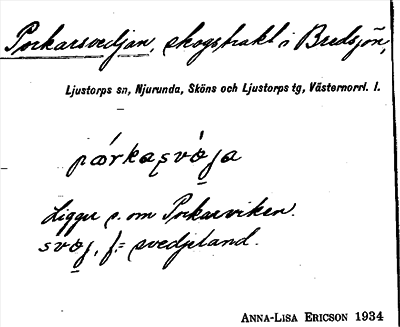 Porkarsvedjan, skogstrakt i Bredsjön,
Ljustorps sn, Njurunda, Sköns och Ljustorps tg, Västernorrl. l.
pǽrkaʂvø̀ja
Ligger s. om Porkarviken.
svøj, f. = svedjeland.
ANNA-LISA ERICSON 1934